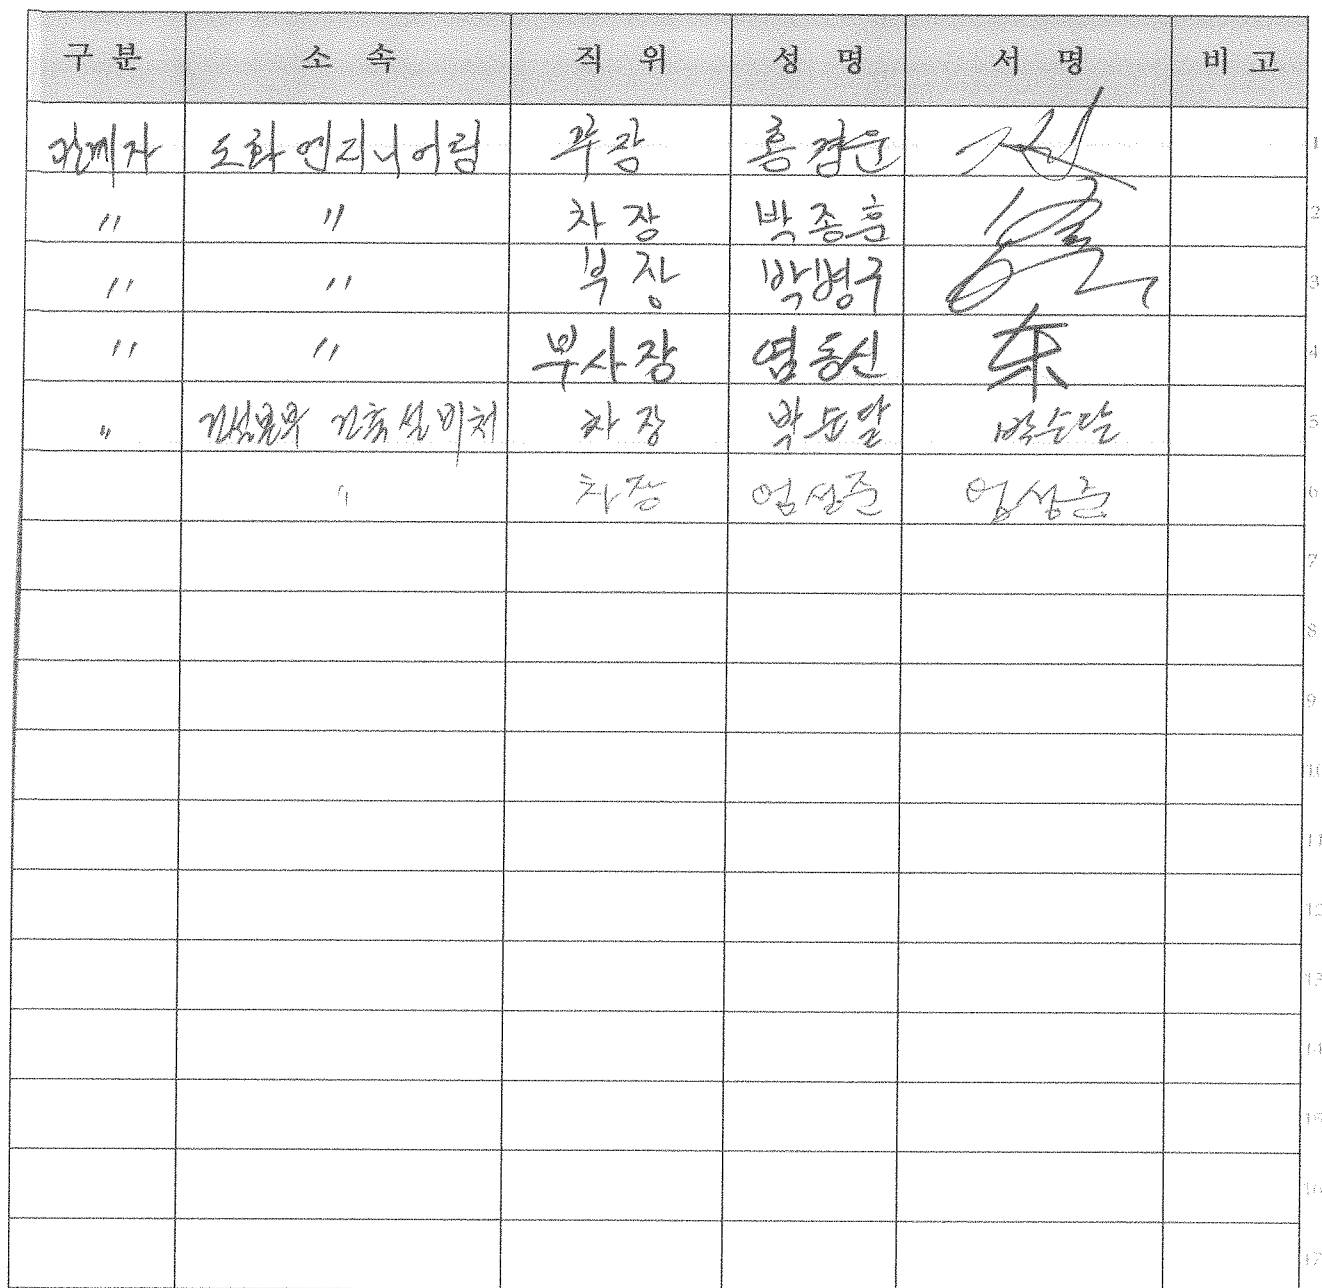 구 분 소 속 직 위 성 명 서 명 비 고
관계자 도화엔지니어링 부장 홍경운 1
〃 〃 차장 박종훈 2
〃 〃 부장 박병구 3
〃 〃 부사장 염동신 东 4
〃 건축설비처 차장 박순달 박순달 5
〃 차장 엄성준 엄성준 6
7
8
9
10
11
12
13
14
15
16
17